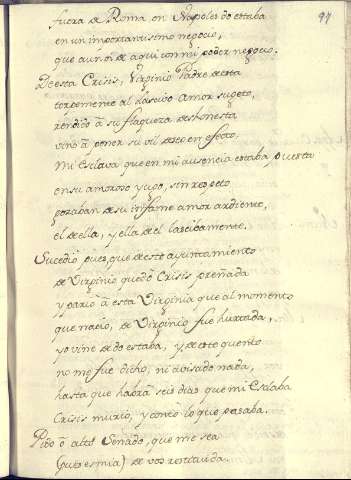 97
fuera de Roma en Napoles do estaba
en un importantisimo negocio,
que aun oi de aqui con mi poder negocio.
De esta Crisis, Virginio Padre de esta
torpemente al lascivo amor sugeto,
rendido â su flaqueza deshonesta
vino â poner su vil deseo en efeto.
Mi Esclava que en mi ausencia estaba puesta
en su amoroso yugo, sin respeto
gozaban de su infame amor ardiente,
el de ella, y ella de el lascibamente.
Sucedio pues que de este ayuntamiento
de Virginio quedô Crisis preñada
y pario â esta Virginia que al momento
que nacio, de Virginio fue hurtada,
yo vine de do estaba, y de este quento
no me fue dicho, ni avisado nada,
hasta que habrâ seis dias que mi Esclaba
Crisis murio, y conto lo que pasaba.
Pido ô alto Senado, que me sea
(pues es mia) de vos restituida.